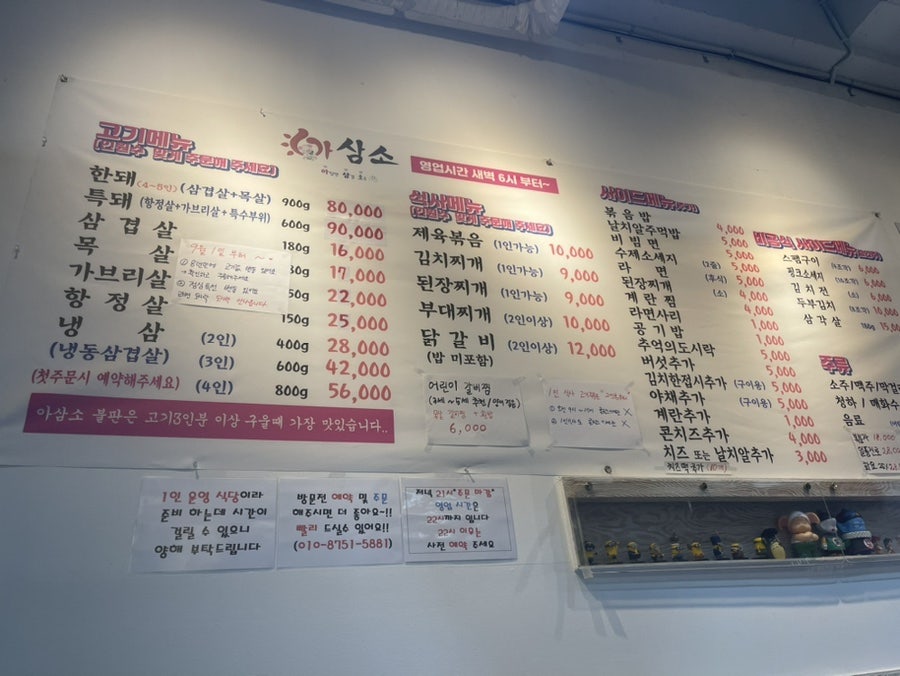 고기메뉴
(인원수 맞게 주문해 주세요)
한돼(4~5인) (삼겹살+목살) 900g 80,000
특돼 (항정살+가브리살+특수부위) 600g 90,000
삼겹살 180g 16,000
목살 17,000
가브리살 22,000
항정살 150g 25,000
냉삼 (2인) 400g 28,000
(냉동삼겹살) (3인) 600g 42,000
(첫주문시 예약해주세요) (4인) 800g 56,000
9월 1일 부터 ~
아삼소 불판은 고기3인분 이상 구울때 가장 맛있습니다..
아삼소
영업시간 새벽 6시 부터~
식사메뉴
(인원수 맞게 주문해 주세요)
제육볶음 (1인가능) 10,000
김치찌개 (1인가능) 9,000
된장찌개 (1인가능) 9,000
부대찌개 (2인이상) 10,000
닭갈비 (2인이상) 12,000
(밥 미포함)
어린이 갈비찜
6,000
사이드메뉴
볶음밥 4,000
날치알주먹밥 5,000
비빔면 5,000
수제소세지 5,000
라면 (2줄) 5,000
된장찌개 (후식) 5,000
계란찜 (소) 4,000
라면사리
공기밥 1,000
추억의도시락 5,000
버섯추가 5,000
김치한접시추가 (구이용) 5,000
야채추가 (구이용) 5,000
계란추가 1,000
콘치즈추가 4,000
치즈 또는 날치알추가 3,000
사이드메뉴
스팸구이 6,000
핑크소세지 6,000
김치전 6,000
두부김치 10,000
삼각살 15,000
주류
소주/맥주/막걸리
청하 / 매화수
음료
1인 운영 식당이라
준비 하는데 시간이
걸릴 수 있으니
양해 부탁드립니다
방문전 예약 및 주문
해주시면 더 좋아요~!!
빨리 드실수 있어요!!
(010-8751-5881)
저녁 21시 "주문 마감"
영업 시간은
22시까지 입니다
22시 이후는
사전 예약 주세요